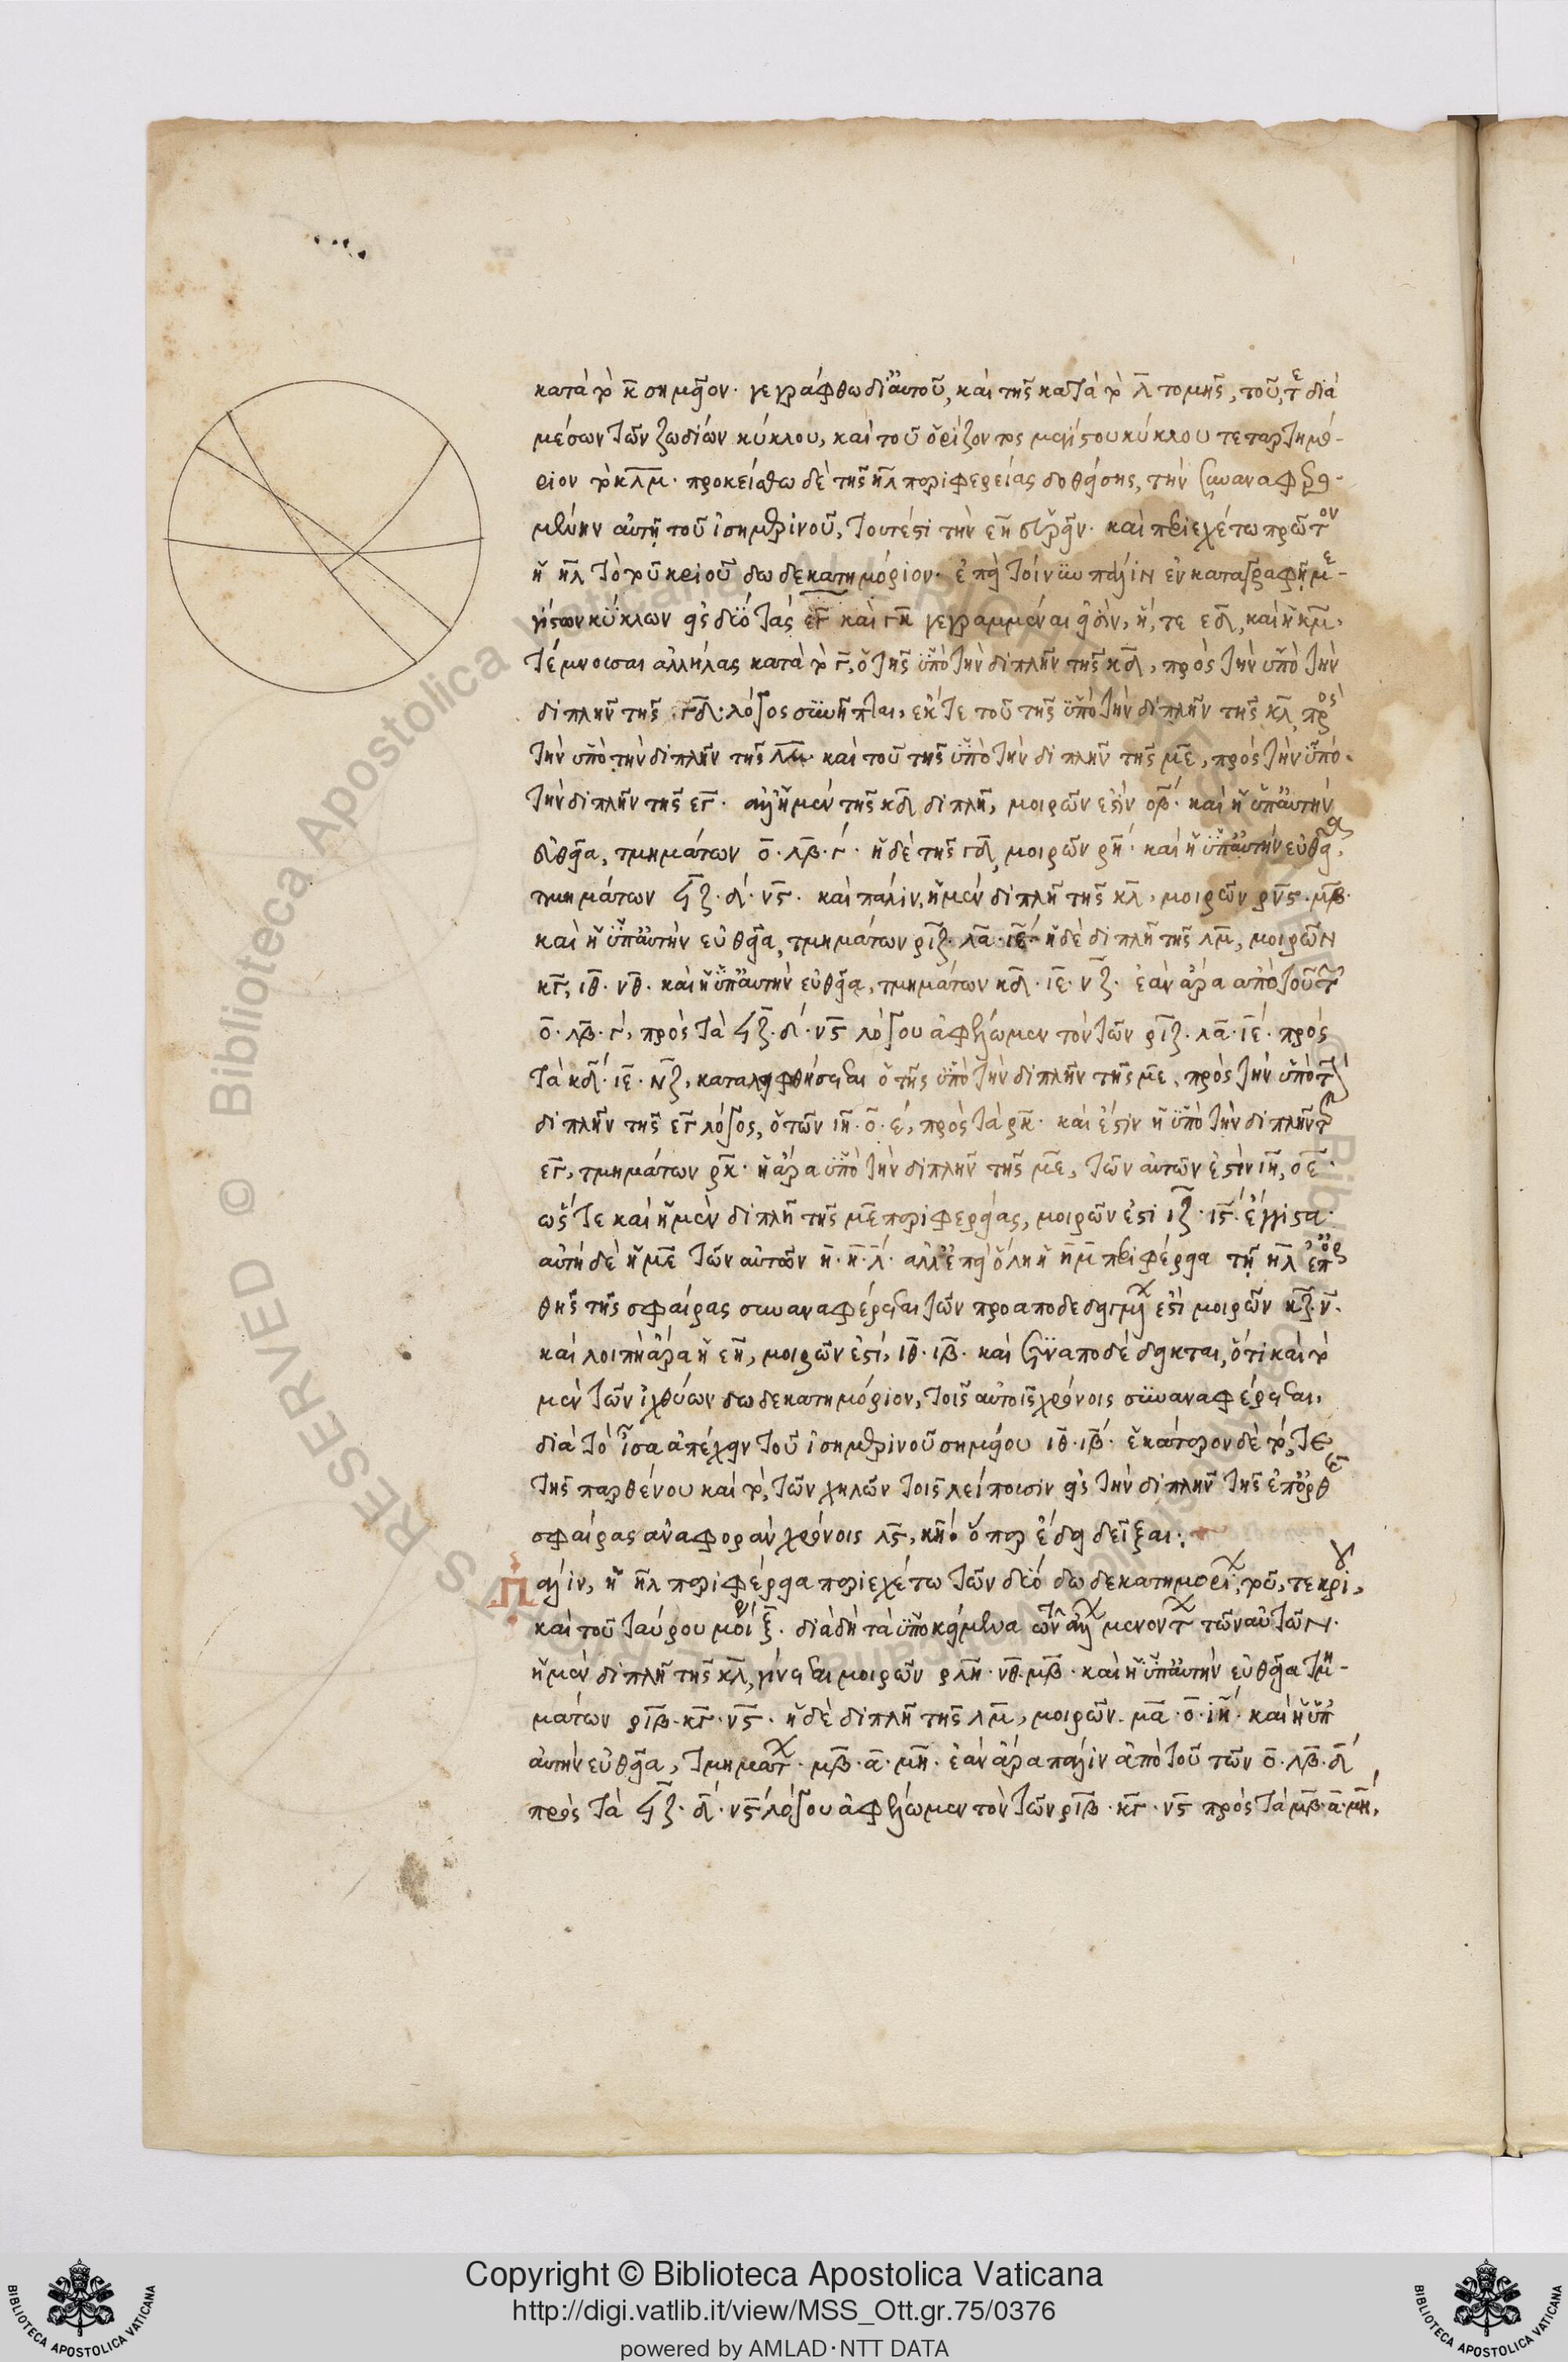 κατὰ τὸ κ̄ σημεῖον· γεγράφθω δι αὐτοῦ, καὶ τῆς κατὰ τὸ λ̄ τομῆς, τοῦ, τε διὰ
μέσων τῶν ζωδίων κύκλου, καὶ τοῦ ὁρίζοντος μεγίστου κύκλου τεταρτημό-
ριον τὸ κ̄λ̄μ̄· προκείσθω δὲ τῆς η̄λ̄ περιφερείας δοθείσης, τὴν συναναφερο-
μένην αὐτῇ τοῦ ἰσημερινοῦ, τουτέστι τὴν ε̄η̄ εὑρεῖν· καὶ περιεχέτω πρῶτον
ἡ η̄λ̄ τὸ τοῦ κριοῦ δωδεκατημόριον· ἐπεὶ τοίνυν πάλιν ἐν καταγραφῇ με-
γίστων κύκλων εἰς δύο τὰς ε̄γ̄ καὶ γ̄κ̄ γεγραμμέναι εἰσὶν, ἥ, τε ε̄δ̄, καὶ ἡ κ̄μ̄,
τέμνουσαι ἀλλήλας κατὰ τὸ γ̄, ὁ τῆς ὑπὸ τὴν διπλῆν τῆς κ̄δ̄, πρὸς τὴν ὑπὸ τὴν
διπλῆν τῆς γ̄δ̄· λόγος συνῆπται, ἔκ τε τοῦ τῆς ὑπὸ τὴν διπλῆν τῆς κ̄λ̄, πρὸς
τὴν ὑπὸ τὴν διπλῆν τῆς λ̄μ̄· καὶ τοῦ τῆς ὑπὸ τὴν διπλῆν τῆς μ̄ε̄, πρὸς τὴν ὑπὸ
τὴν διπλῆν τῆς ε̄γ̄· ἀλλ ἡ μὲν τῆς κ̄δ̄ διπλῆ, μοιρῶν ἐστὶν ο̄β̄· καὶ ἡ ὑπ αὐτὴν
εὐθεῖα, τμημάτων ο̄·λ̄β̄·γ́· ἡ δὲ τῆς γ̄δ̄, μοιρῶν ρ̄η̄· καὶ ἡ ὑπ αὐτὴν εὐθεῖα,
τμημάτων ϟ̄ζ̄·δ́·ν̄ϛ̄· καὶ πάλιν, ἡ μὲν διπλῆ τῆς κ̄λ̄, μοιρῶν ρ̄ν̄ϛ̄·μ̄β̄·
καὶ ἡ ὑπ αὐτὴν εὐθεῖα, τμημάτων ρ̄ῑζ̄·λ̄ᾱ·ῑε̄· ἡ δὲ διπλῆ τῆς λ̄μ̄, μοιρῶν
κ̄γ̄, ῑθ̄·ν̄θ̄· καὶ ἡ ὑπ αὐτὴν εὐθεῖα, τμημάτων κ̄δ̄·ῑε̄·ν̄ζ̄· ἐὰν ἄρα ἀπὸ τοῦ τῶν
ο̄·λ̄β̄·γ́, πρὸς τὰ ϟ̄ζ̄·δ́·ν̄ϛ̄ λόγου ἀφέλωμεν τὸν τῶν ρ̄ῑζ̄·λ̄ᾱ·ῑε̄· πρὸς
τὰ κ̄δ̄·ῑε̄·ν̄ζ̄, καταλειφθήσεται ὁ τῆς ὑπὸ τὴν διπλῆν τῆς μ̄ε̄, πρὸς τὴν ὑπὸ τὴν
διπλῆν τῆς ε̄γ̄ λόγος, ὁ τῶν ῑη̄·ο̄·έ, πρὸς τὰ ρ̄κ̄· καὶ ἐστὶν ἡ ὑπὸ τὴν διπλῆν τῆς
ε̄γ̄, τμημάτων ρ̄κ̄· ἡ ἄρα ὑπὸ τὴν διπλῆν τῆς μ̄ε̄, τῶν αὐτῶν ἐστὶν ῑη̄, ο̄ ε̄·
ὥστε καὶ ἡ μὲν διπλῆ τῆς μ̄ε̄ περιφερείας, μοιρῶν ἐστὶ ῑζ̄·ῑϛ̄· ἔγγιστα·
αὐτὴ δὲ ἡ μ̄ε̄ τῶν αὐτῶν η̄·η̄·λ̄· ἀλλ ἐπεὶ ὅλη ἡ η̄μ̄ περιφέρεια τῇ η̄λ̄ ἐπ ὀρ
θῆς τῆς σφαίρας συναναφέρεται τῶν προαποδεδειγμένων ἐστὶ μοιρῶν κ̄ζ̄·ν̄·
καὶ λοιπὴ ἄρα ἡ ε̄η̄, μοιρῶν ἐστὶ, ῑθ̄·ῑβ̄· καὶ συναποδέδεικται, ὅτι καὶ τὸ
μὲν τῶν ἰχθύων δωδεκατημόριον, τοῖς αὐτοῖς χρόνοις συναναφέρεται,
διὰ τὸ ἴσα ἀπέχειν τοῦ ἰσημερινοῦ σημείου ῑθ̄·ῑβ̄· ἑκάτερον δὲ τό, τε
τῆς παρθένου καὶ τὸ, τῶν χηλῶν τοῖς λείπουσιν εἰς τὴν διπλῆν τῆς ἐπ ὀρθῆς
σφαίρας ἀναφορὰν χρόνοις λ̄ϛ̄, κ̄η̄· ὅπερ ἔδει δεῖξαι·
Πάλιν, ἡ η̄λ̄ περιφέρεια περιεχέτω τῶν δύο δωδεκατημορίων, τοῦ, τε κριοῦ,
καὶ τοῦ ταύρου μοί ξ̄· διὰ δὴ τὰ ὑποκείμενα τῶν ἄλλων μενόντων τῶν αὐτῶν·
ἡ μὲν διπλῆ τῆς κ̄λ̄, γίνεται μοιρῶν ρ̄λ̄η̄·ν̄θ̄·μ̄β̄· καὶ ἡ ὑπ αὐτὴν εὐθεῖα τμη-
μάτων ρ̄ῑβ̄·κ̄γ̄·ν̄ϛ̄· ἡ δὲ διπλῆ τῆς λ̄μ̄, μοιρῶν μ̄ᾱ·ο̄·ῑη̄· καὶ ἡ ὑπ
αὐτὴν εὐθεῖα, τμημάτων· μ̄β̄·ᾱ·μ̄η̄· ἐὰν ἄρα πάλιν ἀπὸ τοῦ τῶν ο̄·λ̄β̄·δ̄
πρὸς τὰ ϟ̄ζ̄·δ̄·ν̄ϛ̄ λόγου ἀφέλωμεν τὸν τῶν ρ̄ῑβ̄·κ̄γ̄·ν̄ϛ̄ πρὸς τὰ μ̄β̄·ᾱ·μ̄η̄,
Copyright © Biblioteca Apostolica Vaticana
http://digi.vatlib.it/view/MSS_Ott.gr.75/0376
powered by AMLAD·NTT DATA
BIBLIOTECA APOSTOLICA VATICANA
BIBLIOTECA APOSTOLICA VATICANA